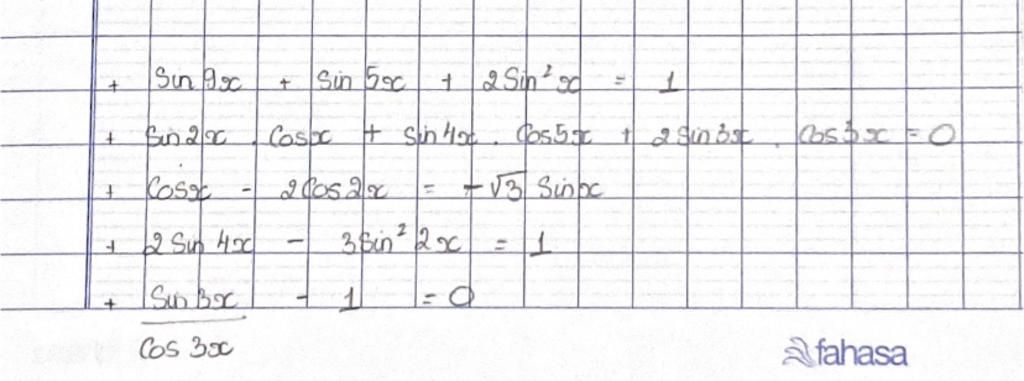 + Sin 9x + Sin 5x + 2Sin² x = 1
+ Sin 2x . Cosx + Sin 4x . Cos5x + 2 Sin 3x . Cos 3x = 0
+ Cosx - 2Cos 2x = -√3 Sinx
+ 2 Sin 4x - 3Sin² 2x = 1
+ Sin 3x - 1 = 0
Cos 3x
fahasa